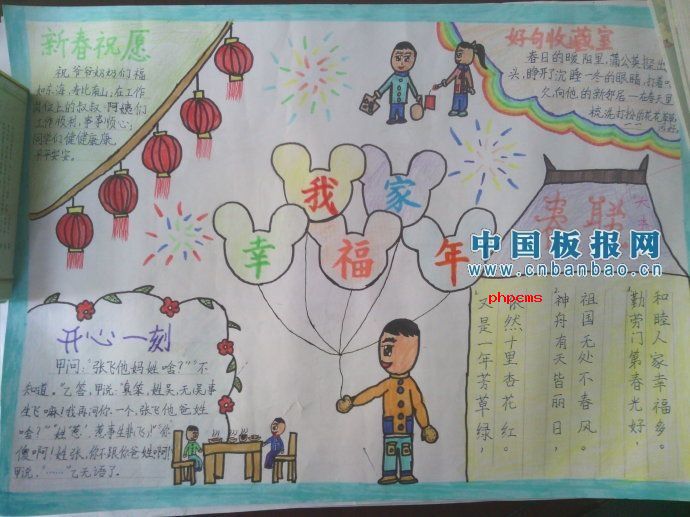 新春祝愿
祝爷爷奶奶们福
如东海,寿比南山;在工作
岗位上的叔叔阿姨们
工作顺利,事事顺心;
同学们健健康康,
平平安安。
好句收藏室
春日的暖阳里,蒲公英探出
头,睁开了沉睡一冬的眼睛,打着
久,向他的新邻居一
梳洗打扮
我家
幸福年
春联
大
中国板报网
www.cnbanbao.cn
phpcms
和睦人家幸福多。
勤劳门第春光好,
祖国无处不春风。
神舟有天皆丽日,
依然十里杏花红。
又是一年芳草绿,
开心一刻
甲问:“张飞他妈姓啥?”“不
知道。”乙答,甲说:“真笨,姓吴,无吴事
生飞嘛!我再问你一个,张飞他爸姓
啥?”“姓惹,惹事生非飞!”“你
傻啊!姓张,你不跟你爸姓啊!”
甲说,“……”乙无语了。